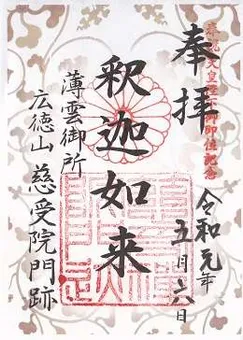 奉祝天皇陛下御即位記念
奉拝
令和元年
五月六日
釈迦如来
薄雲御所
広徳山 慈受院門跡